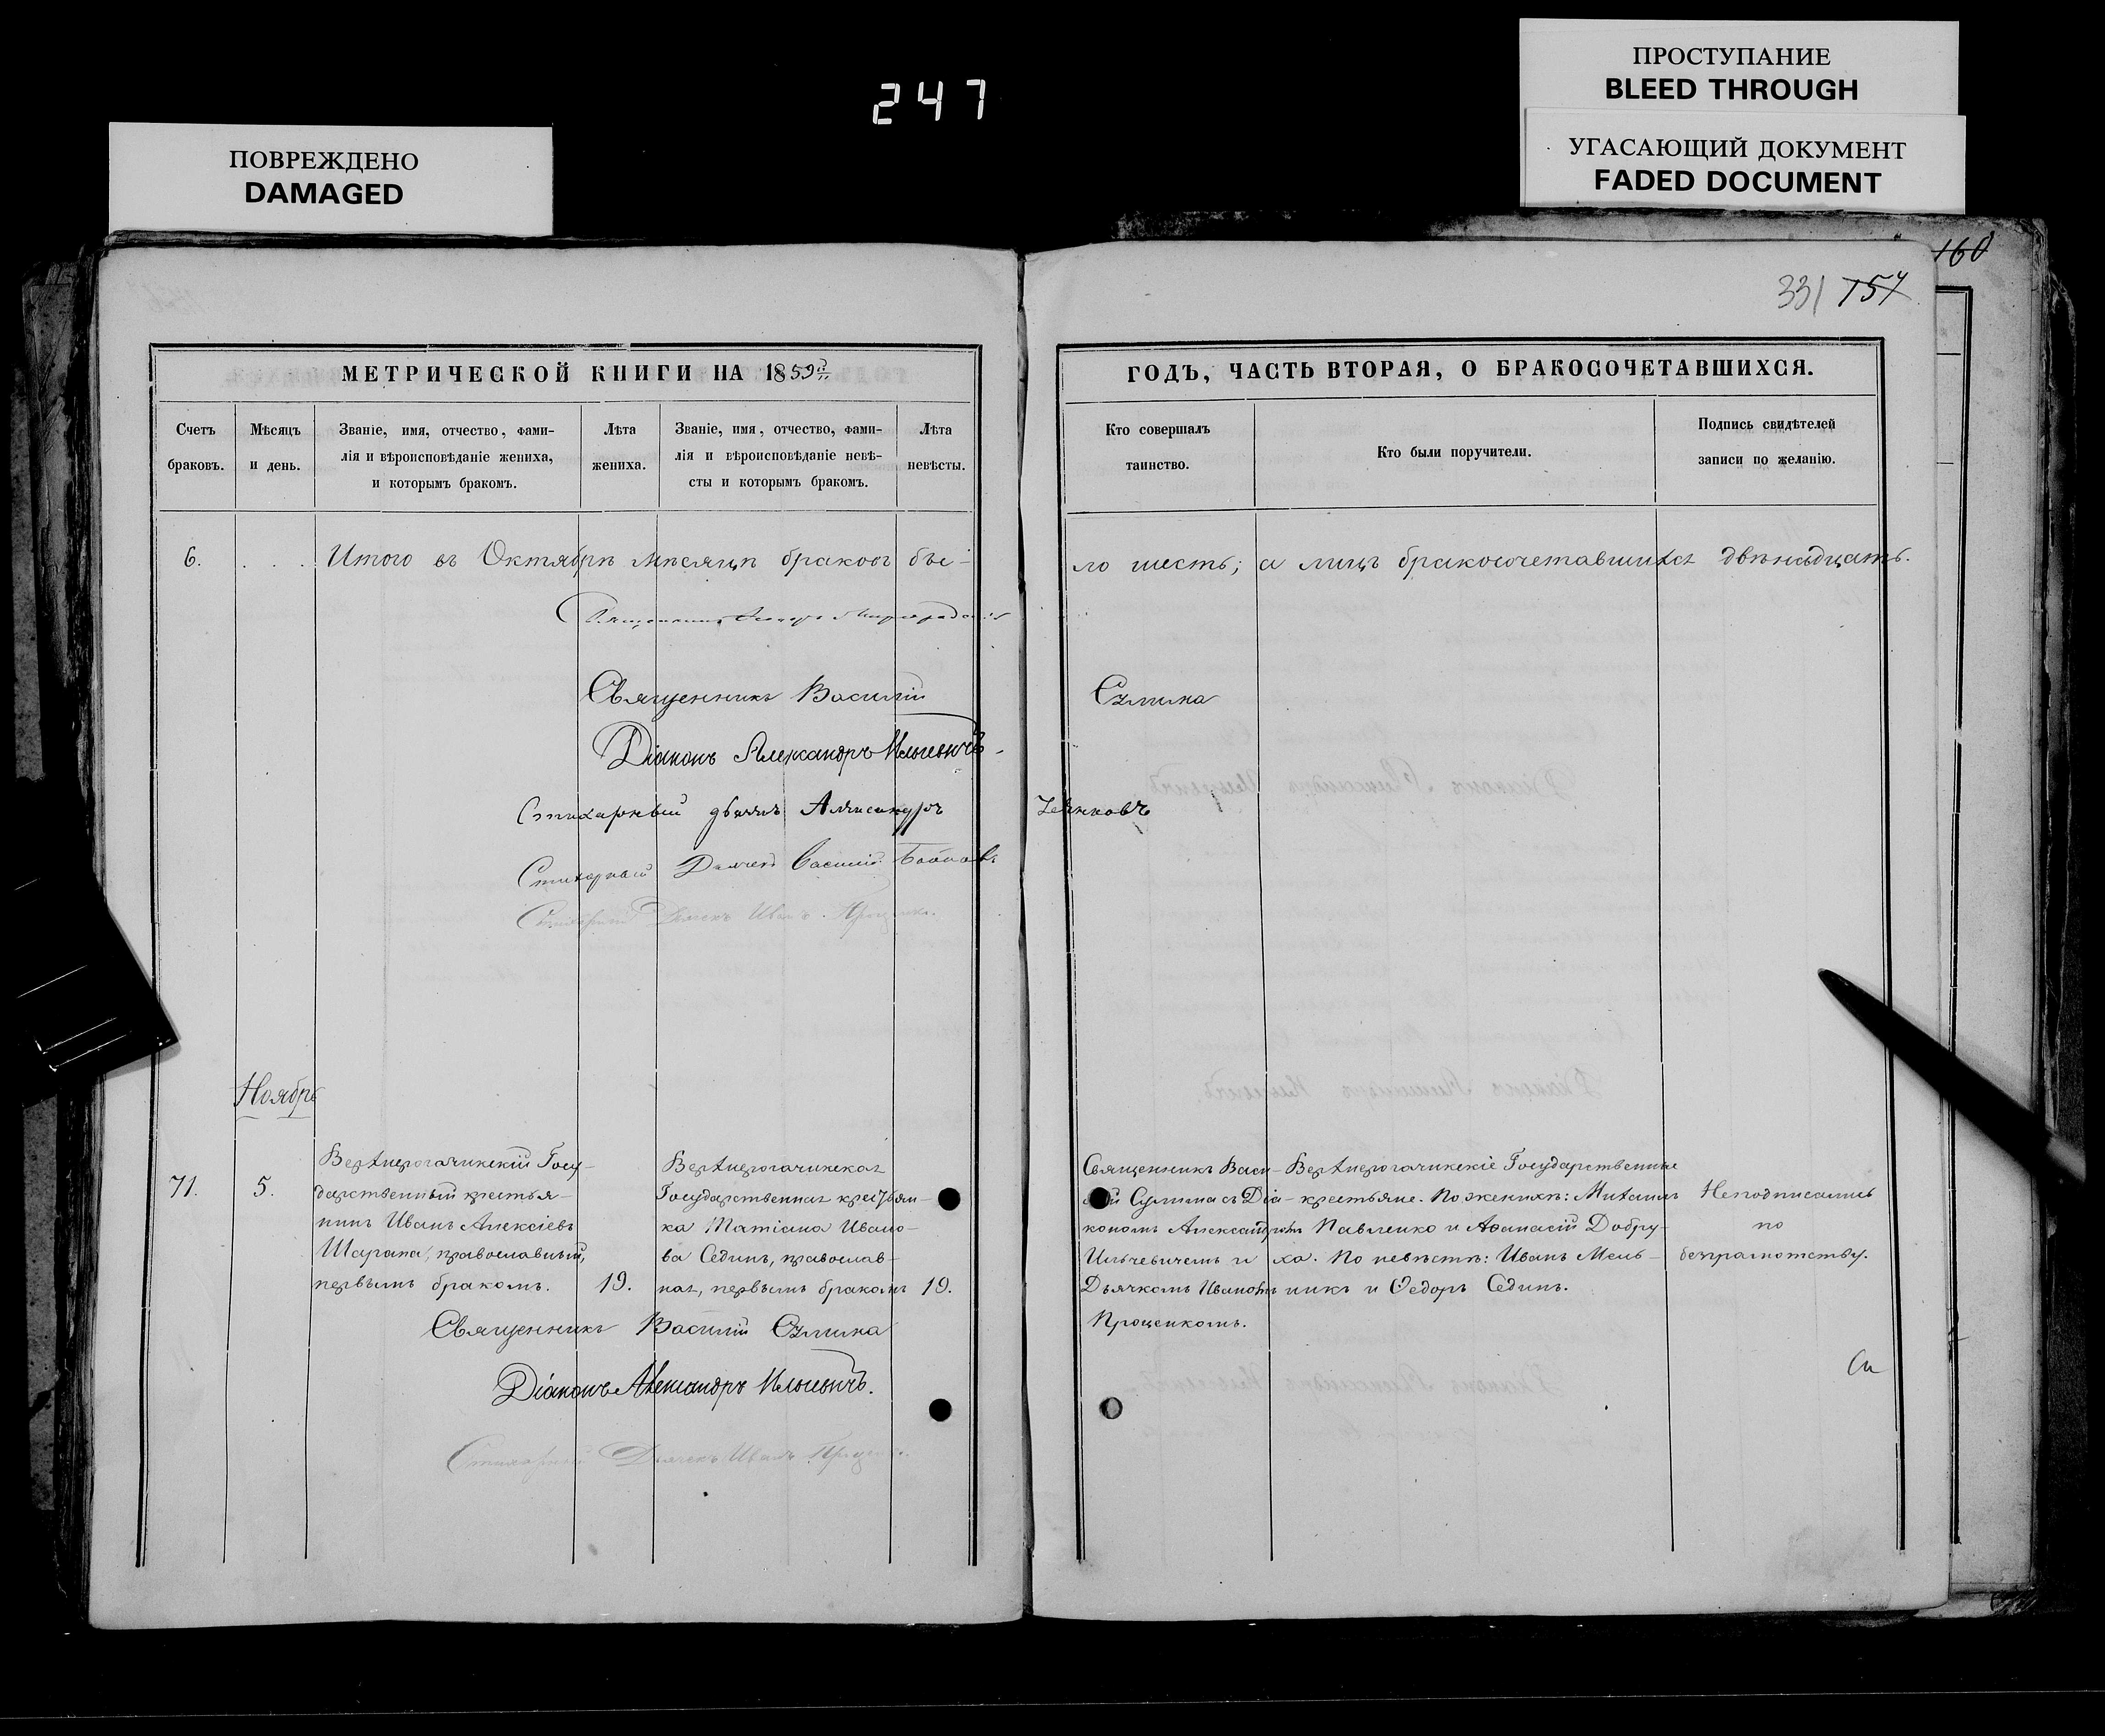 247
ПРОСТУПАНИЕ
BLEED THROUGH
УГАСАЮЩИЙ ДОКУМЕНТ
FADED DOCUMENT
ПОВРЕЖДЕНО
DAMAGED
160
331 157
МЕТРИЧЕСКОЙ КНИГИ НА 1859й
ГОДЪ, ЧАСТЬ ВТОРАЯ, О БРАКОСОЧЕТАВШИХСЯ.
Счетъ
браковъ.
Мѣсяцъ
и день.
Званіе, имя, отчество, фами-
лія и вѣроисповѣданіе жениха,
и которымъ бракомъ.
Лѣта
жениха.
Званіе, имя, отчество, фами-
лія и вѣроисповѣданіе невѣ-
сты и которымъ бракомъ.
Лѣта
невѣсты.
Кто совершалъ
таинство.
Кто были поручители.
Подпись свидѣтелей
записи по желанію.
6. . . . Итого въ Октябрѣ мѣсяцѣ браковъ бы-
ло шесть; а лицъ бракосочетавшихся двѣнадцать.
Священникъ
Священникъ Василій Сулима
Діаконъ Александръ Ильчевичъ
Стихарный дьячекъ Александръ
Стихарный Дьячекъ Василій
Стихарный Дьячекъ Иванъ Проценко.
Ноябрь
71.
5.
Верхнерогачикскій Госу-
дарственный крестья-
нинъ Иванъ Алексіевъ
Шарапа, православный,
первымъ бракомъ.
19.
Верхнерогачикская
Государственная крестьян-
ка Татіана Ивано-
ва Сединъ, православ-
ная, первымъ бракомъ
19.
Священникъ Васи-
лій Сулима съ Діа-
кономъ Александромъ
Ильчевичемъ и
Дьячкомъ Иваномъ
Проценкомъ.
Верхнерогачикскіе Государственные
крестьяне. По женихѣ: Михаилъ
Павленко и Аѳанасій Добру-
ха. По невѣстѣ: Иванъ Мель-
никъ и Ѳедоръ Сединъ.
Неподписались
по
безграмотству.
Священникъ Василій Сулима
Діаконъ Александръ Ильчевичъ.
Стихарный Дьячекъ Иванъ Проценко.